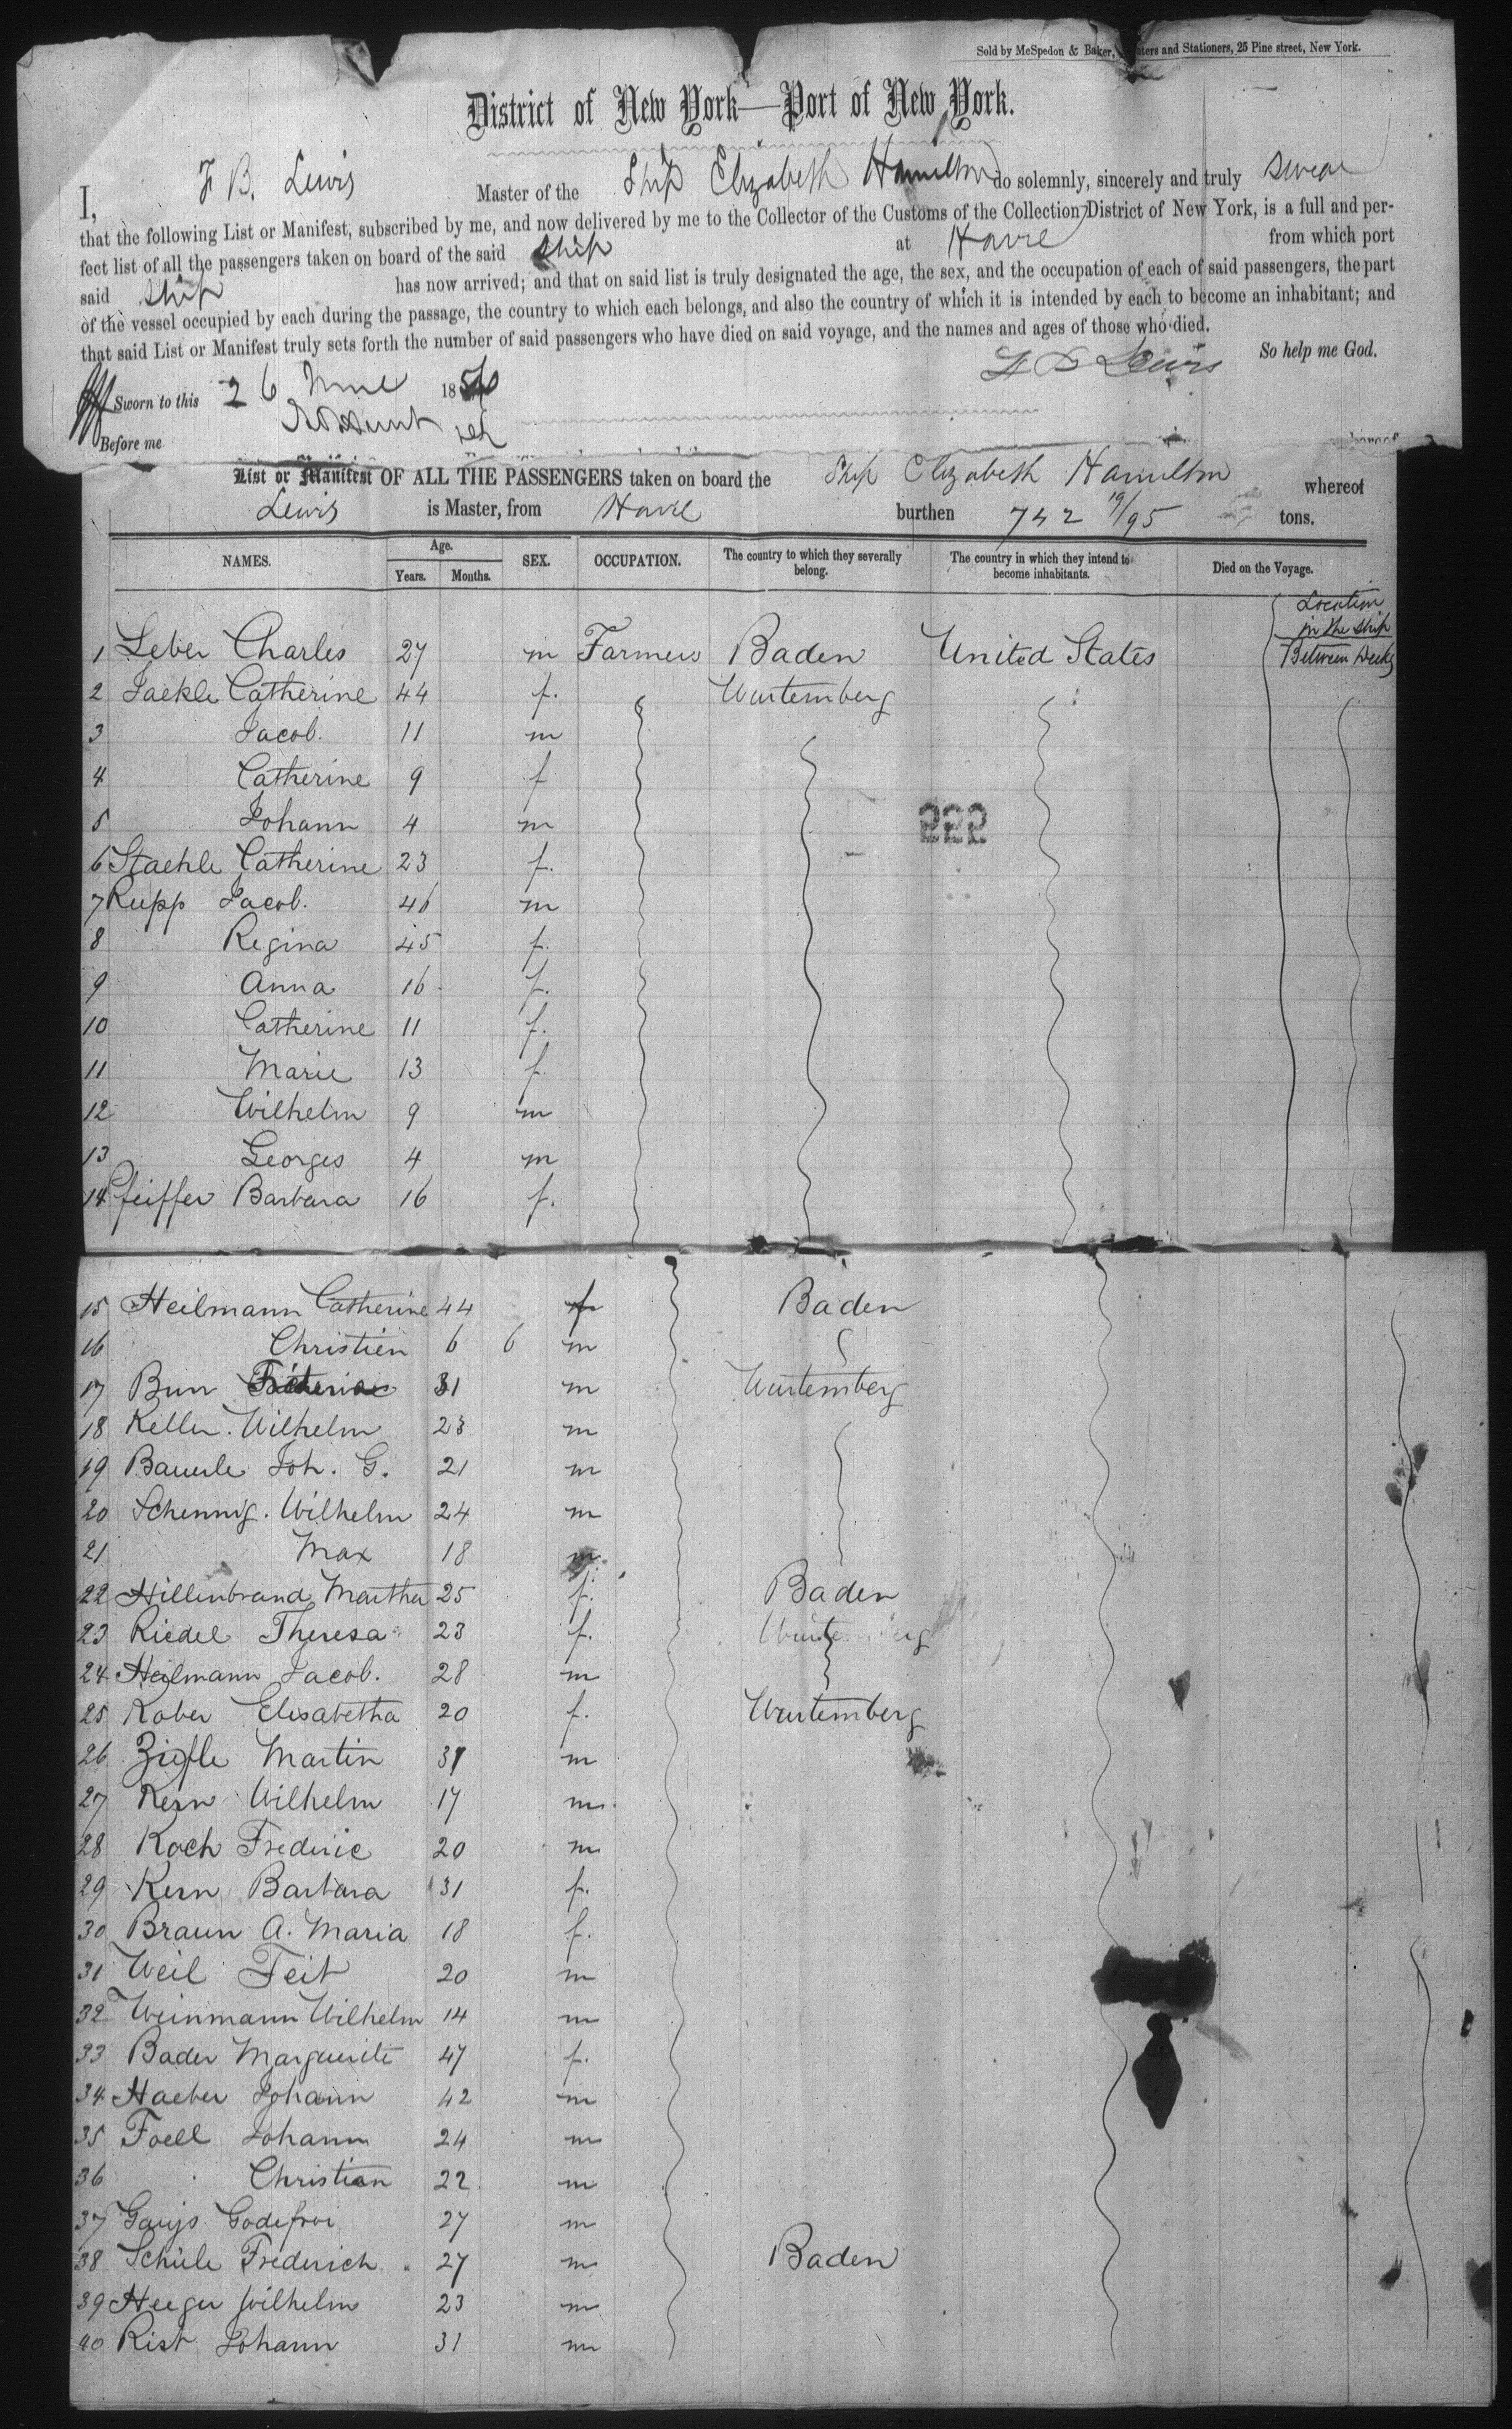 Sold by McSpedon & Baker, Printers and Stationers, 25 Pine street, New York.
District of New York—Port of New York.
I, F B. Lewis Master of the Ship Elizabeth Hamilton do solemnly, sincerely and truly swear
that the following List or Manifest, subscribed by me, and now delivered by me to the Collector of the Customs of the Collection District of New York, is a full and per-
fect list of all the passengers taken on board of the said Ship at Havre from which port
said Ship has now arrived; and that on said list is truly designated the age, the sex, and the occupation of each of said passengers, the part
of the vessel occupied by each during the passage, the country to which each belongs, and also the country of which it is intended by each to become an inhabitant; and
that said List or Manifest truly sets forth the number of said passengers who have died on said voyage, and the names and ages of those who died.
So help me God.
F B Lewis
Sworn to this 26 June 18
Before me
List or Manifest OF ALL THE PASSENGERS taken on board the Ship Elizabeth Hamilton whereof
Lewis is Master, from Havre burthen 742 19/95 tons.
NAMES. Age. Years. Months. SEX. OCCUPATION. The country to which they severally belong. The country in which they intend to become inhabitants. Died on the Voyage.
Location
in the ship
1 Leber Charles 27 m Farmers Baden United States Between Decks
2 Jaekle Catherine 44 f. Wurtemberg
3 Jacob. 11 m
4 Catherine 9 f
5 Johann 4 m
999
6 Staehle Catherine 23 f.
7 Rupp Jacob. 46 m
8 Regina 45 f.
9 Anna 16 f.
10 Catherine 11 f.
11 Marie 13 f.
12 Wilhelm 9 m
13 Georges 4 m
14 Pfeiffer Barbara 16 f.
15 Heilmann Catherine 44 f Baden
16 Christien 6 6 m
17 Bun Frederic 31 m Wurtemberg
18 Keller Wilhelm 23 m
19 Bauerle Joh. G. 21 m
20 Schennig. Wilhelm 24 m
21 Max 18 m
22 Hillenbrand Martha 25 f. Baden
23 Riedel Theresa 23 f. Wurtemberg
24 Heilmann Jacob. 28 m
25 Kober Elisabetha 20 f. Wurtemberg
26 Ziefle Martin 31 m
27 Kern Wilhelm 17 m
28 Koch Frederic 20 m
29 Kern Barbara 31 f.
30 Braun A. Maria 18 f.
31 Weil Feit 20 m
32 Weinmann Wilhelm 14 m
33 Bader Marguerite 47 f.
34 Haeber Johann 42 m
35 Foell Johann 24 m
36 Christian 22 m
37 Godefroi 27 m
38 Schüle Frederich 27 m Baden
39 Heeger Wilhelm 23 m
40 Rist Johann 31 m